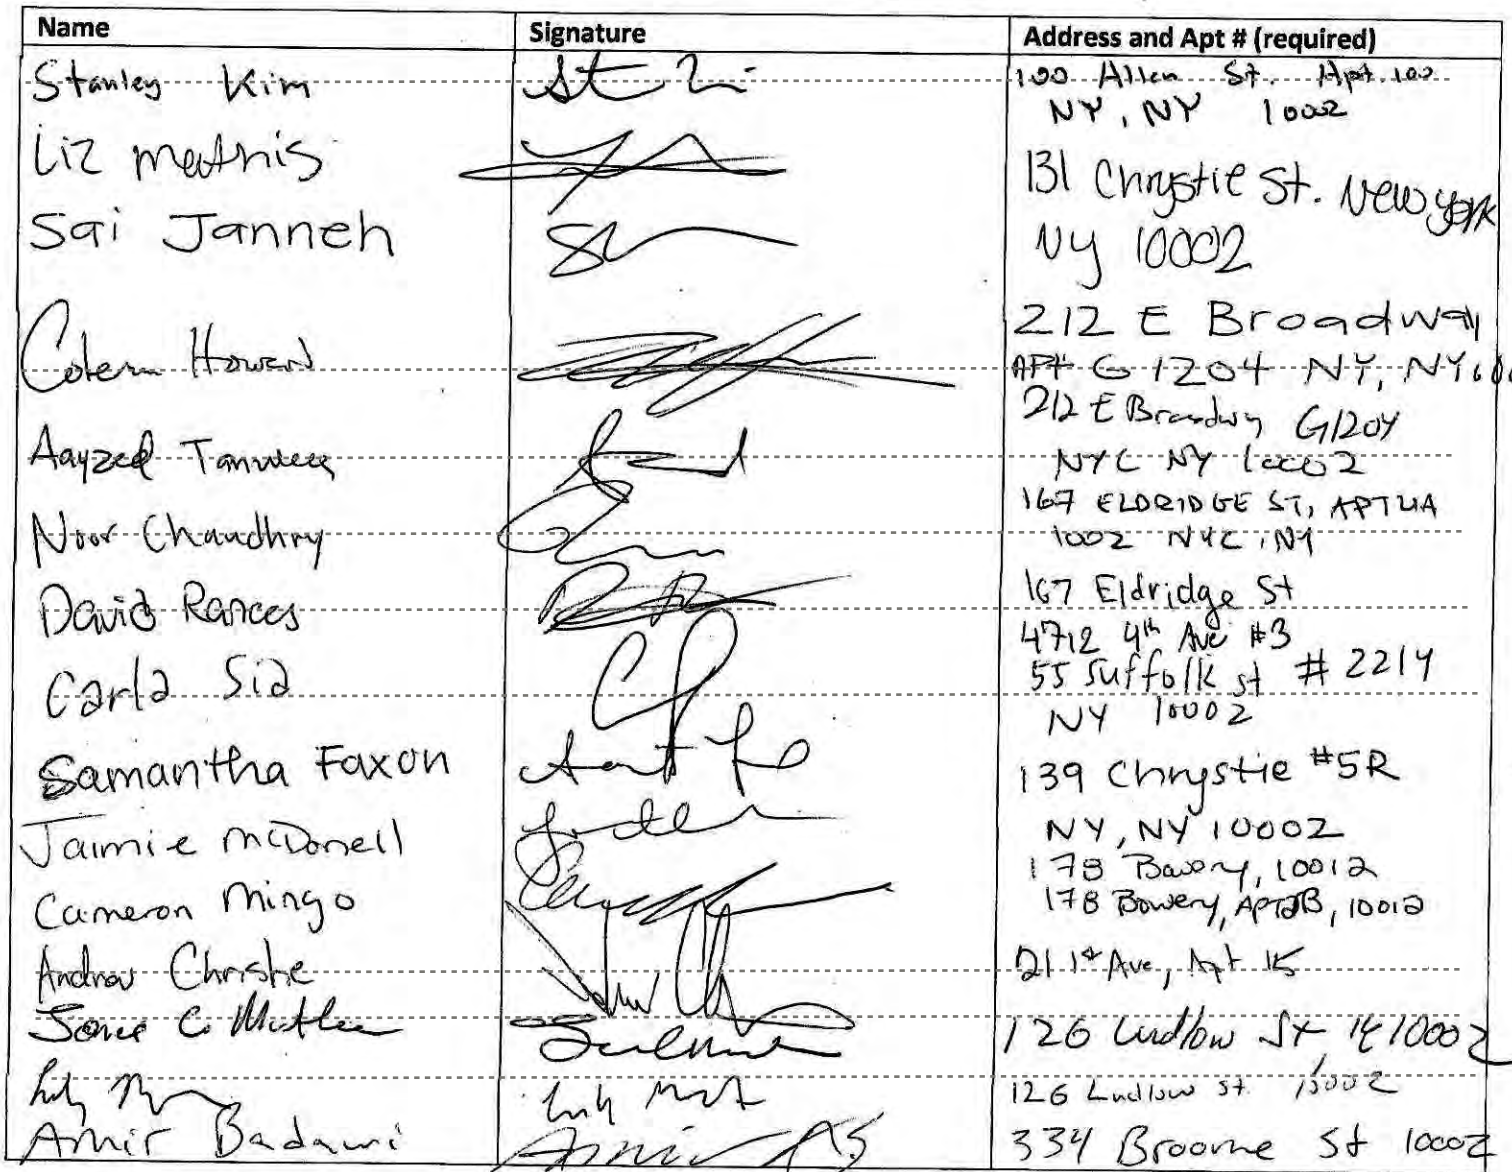 Name Signature Address and Apt # (required)
Stanley Kim 100 Allen St. Apt. 100
NY, NY 10002
Liz Mathis 131 Chrystie St. New York
Sai Janneh NY 10002
212 E Broadway
Howard APT# G 1204 NY, NY
212 E Broadway G1204
Aayzed Tanweer NYC NY 10002
167 ELDRIDGE ST, APT 4A
Noor Chaudhry 1002 NYC, NY
David Rances 167 Eldridge St
4712 4th Ave #3
Carla Sia 55 Suffolk st #2214
NY 10002
Samantha Faxon 139 Chrystie #5R
Jaimie McDonell NY, NY 10002
178 Bowery, 10012
Cameron Mingo 178 Bowery, APT2B, 10012
Andrew Christie 21 1st Ave, Apt 15
C. 126 Ludlow St 10002
126 Ludlow st. 10002
Amir Badawi 334 Broome St 10002